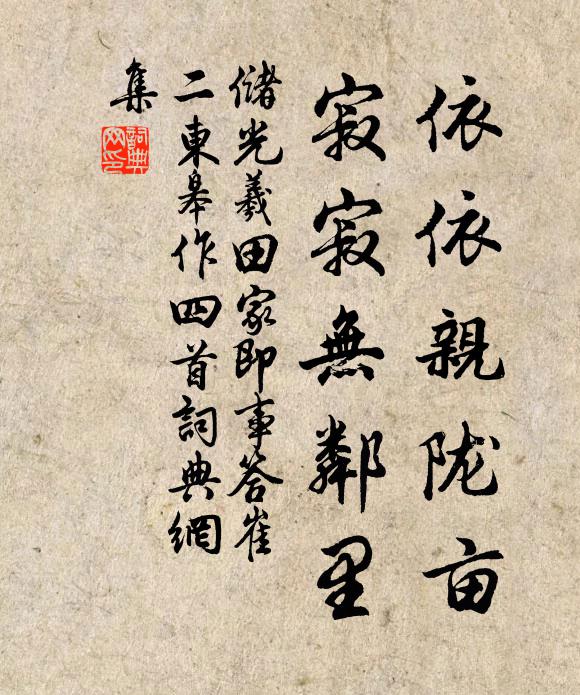 依依親陇亩
寂寂無鄰里
儲光羲田家即事答崔
二東皋作四首詞典網
集
詞典
网印